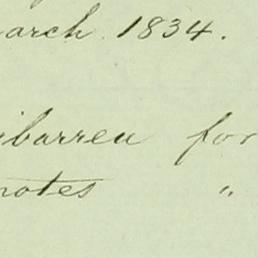 arch 1834.
ibarren for
notes "